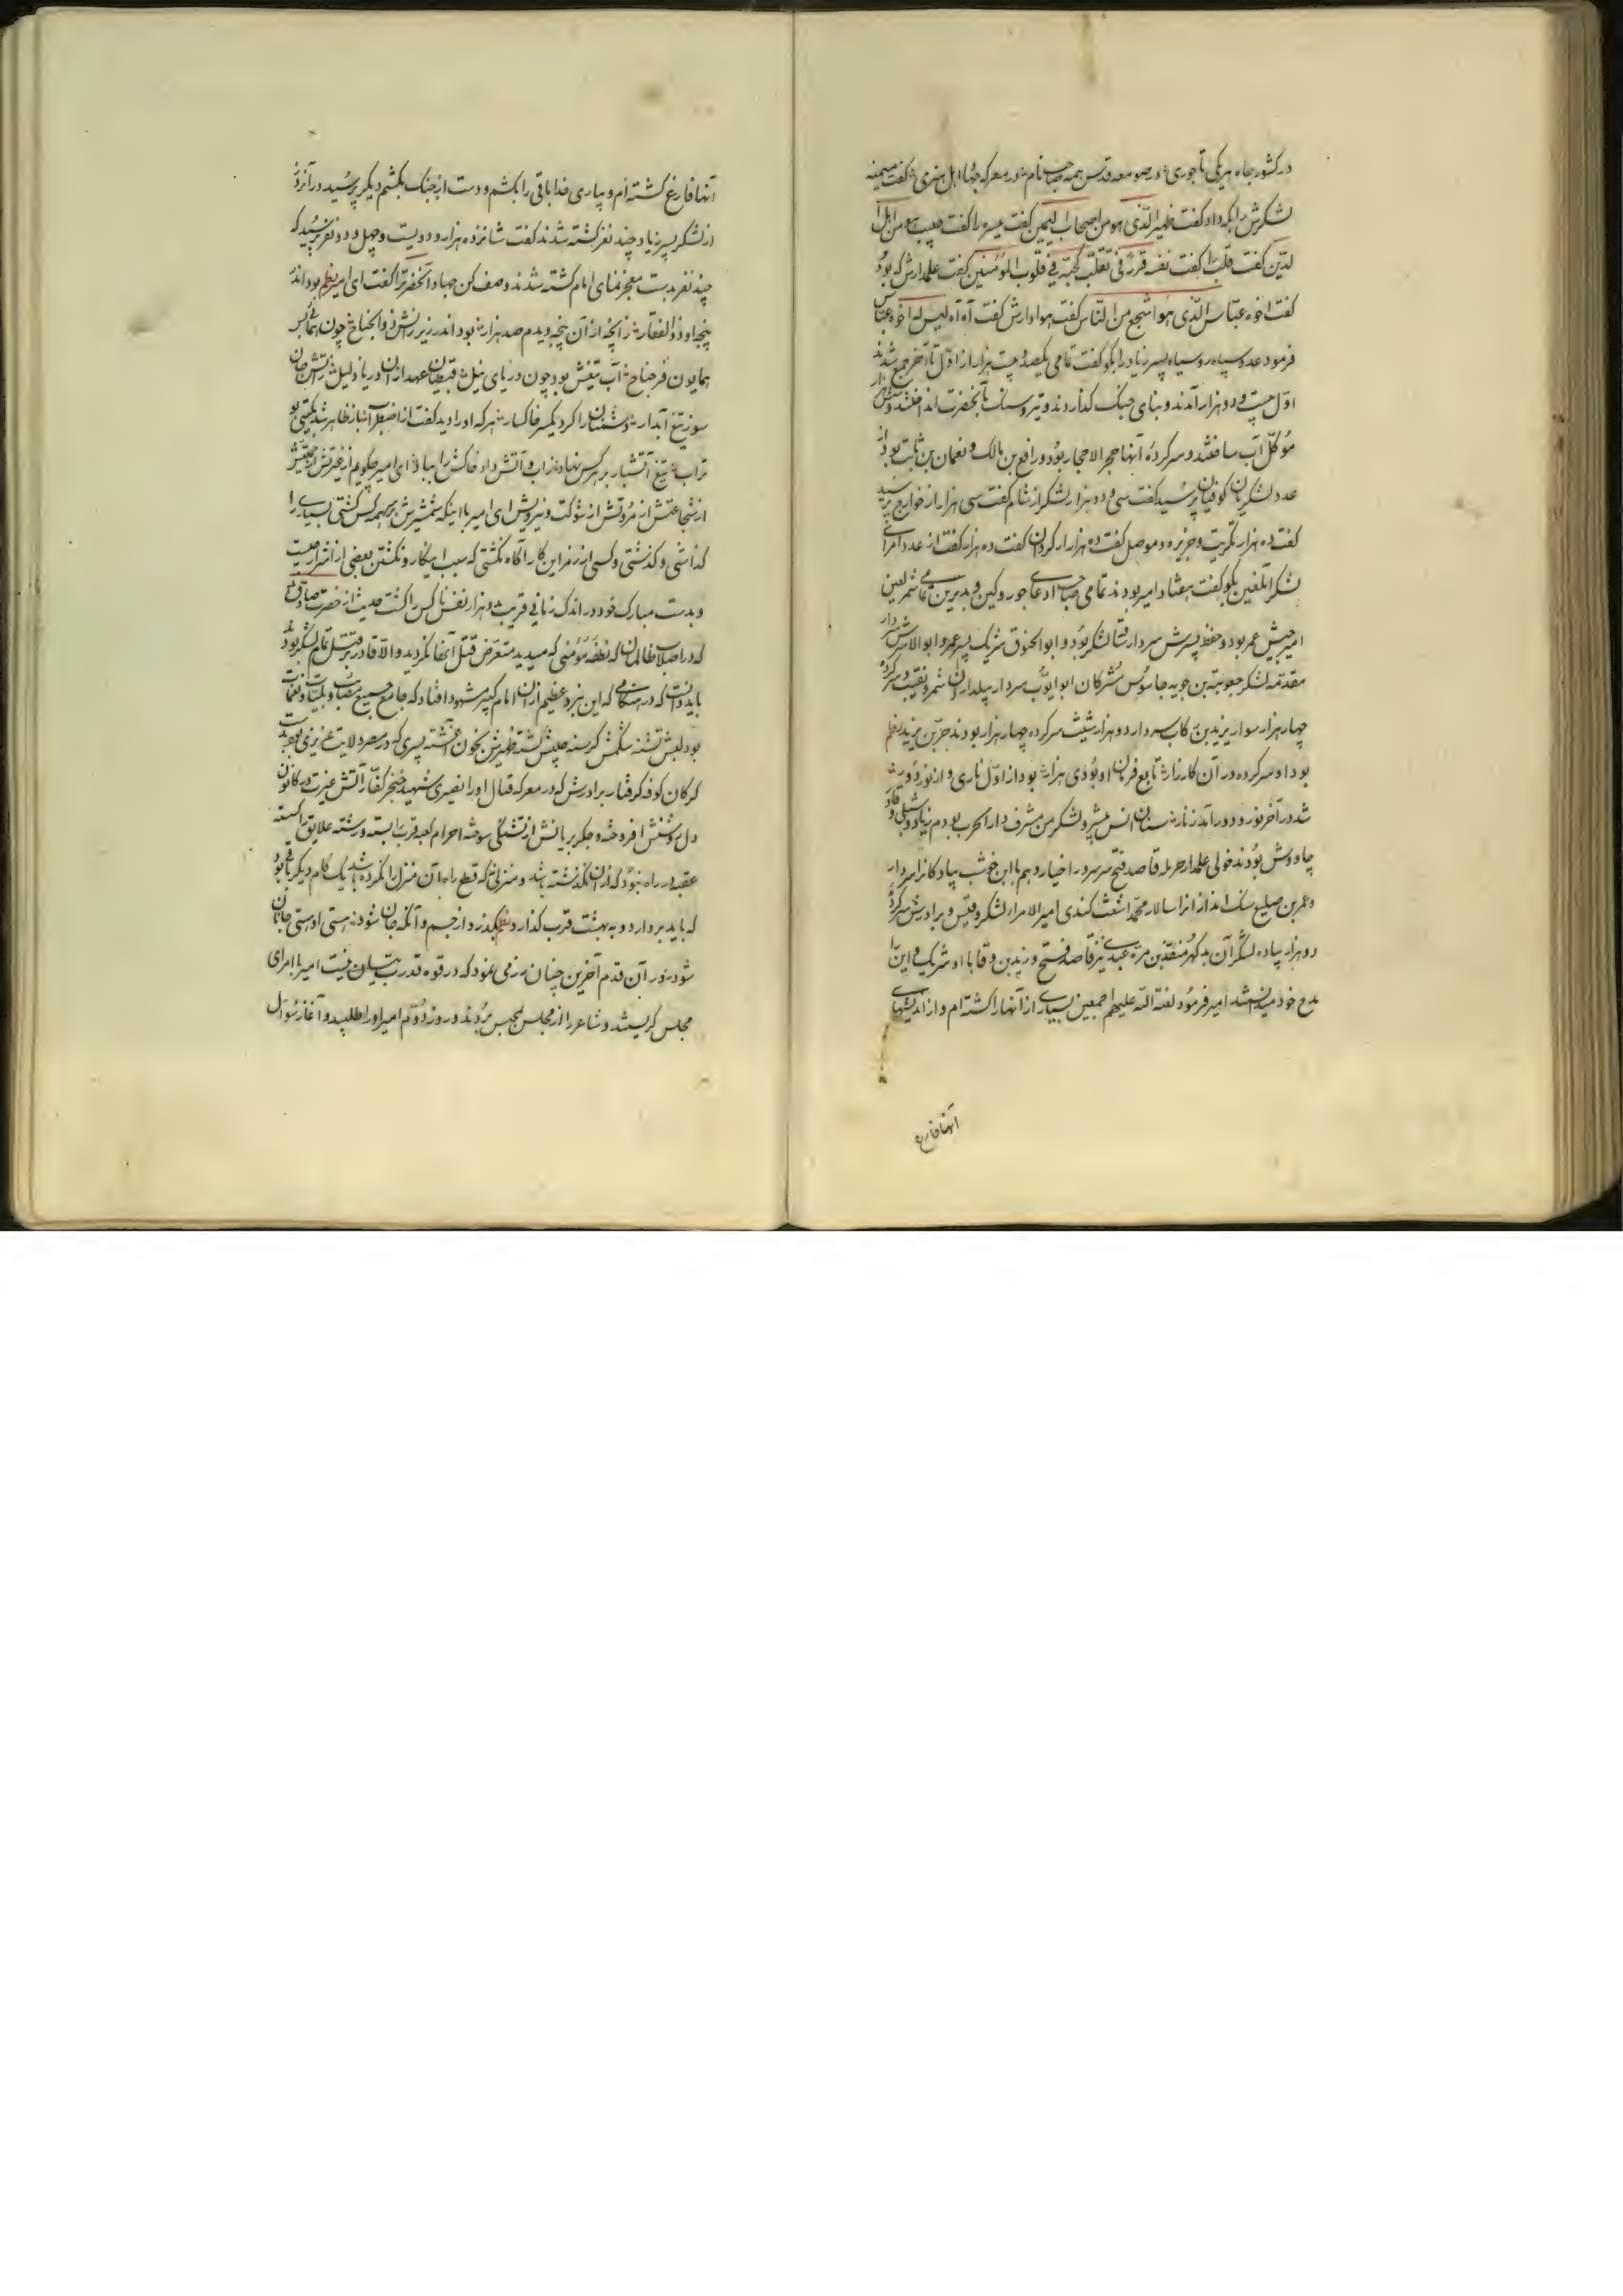 در کشور جاه هر یکی تاجوری در صومعه قدس همه صاحب نام در معرکه جهاد اهل هنری گفت میمنه
لشکرش را بکه داد گفت ظهیر الذی هو من اصحاب الیمین گفت میسره را گفت حبیب هو من اهل
لدین گفت قلب را گفت نفسه قرر فی تقلب محبه فی قلوب المؤمنین گفت علمدارش که بود
گفت اخوه عباس الذی هو اشجع من الناس گفت هوادارش گفت آه آه لیس له اخوه عباس
فرمود عدد سپاه روسیاه پسر زیاد را بگو گفت تمامی یکصد و بیست هزار از اول تا آخر جمع شدند
اول بیست و دو هزار آمدند و بنای جنک گذاردند و تیر و سنک بآنحضرت انداختند و شش هزار
مؤکل آب ساختند و سرکرده آنها حجر الاحجار بود و رافع بن مالک و نعمان بن ثابت بود از
عدد لشکریان کوفیان پرسید گفت سی و دو هزار لشکر از شام گفت سی هزار از خوارج پرسید
گفت ده هزار تکریت و جزیره و موصل گفت ده هزار از کردان گفت ده هزار گفت از عدد امرای
لشکر آنلعین بگو گفت هفتاد امیر بودند تمامی صاحب ادعا جور و کین و بدترین تمامی شمر لعین
امیر جیش عمر بود و حفظ پسرش سردار لشکر بود و ابو الحنوق شریک پسر عمر و ابو الاشرس سردار
مقدمه لشکر جعوبة بن جویه جاسوس مشرکان ابو ایوب سردار پیلداران شمر و نقیب و سرکرده
چهار هزار سوار یزید بن کاب سردار دو هزار شیث سرکرده چهار هزار بودند حر بن یزید نظم
بود او سرکرده در آن کارزار تابع فرمان او بودی هزار بود از اول ناری و از نور دور
شد در آخر نور و دور آمد ز نار سنان انس میشر و لشکر من مشرف دار الحرب بودم زیاد و شبلی و قاد
چاووش بودند خولی علمدار حرمله قاصد فتح سر سردر اخیار و هم با ابن خوشب پیادکانرا سردار
و عمر بن صلیع سنک انداز انرا سالار محمد اشعث کندی امیر الامرا لشکر و قیس و برادرش سرکرده
دو هزار پیاده لشکر آن بدکهر منقذ بن مره عبدی نیز قاصد فتح و زید بن وقا با او شریک و این را
مدح خود میدانستند امیر فرمود لعنة الله علیهم اجمعین بسیاری از آنها را کشته ام و از اندیشهای
آنها فارغ
آنها فارغ کشته ام و بیاری خدا باقی را بکشم و دست از جنک بکشم دیکر پرسید در آنروز
از لشکر پسر زیاد چند نفر کشته شدند گفت شانزده هزار و دویست و چهل و دو نفر پرسید که
چند نفر بدست معجز نمای امام کشته شدند وصف کن جهاد آنحضرترا گفت ای امیر نظم بود اندر
پنجه او ذو الفقار ز آنچه از آن پنجه دیدم صد هزار بود اندر زیر رانش ذو الجناح چون همائی بس
همایون فر جناح آب تیغش بود چون دریای نیل قبطیان عهد از آن دریا ذلیل ز آتش جان
سوز تیغ آبدار دشمنان را کرد یکسر خاکسار هر که او را دید گفت از اضطراب باز ظاهر شد بکیتی بو
تراب تیغ آتشبار بر هر کس نهاد ز آب و آتش داد خاکش را بباد ای امیر چکویم از غیرتش از حمیتش
از شجاعتش از مروتش از شوکت و نیرویش ای امیر با اینکه شمشیرش بهر کس کشتی بسیاری را
گذاشتی و گذشتی و کسی از رمز این کار آگاه نکشتی که سبب اینکار و نکشتن بعضی از اشرار چیست
و بدست مبارک خود در اندک زمانی قریب بدو هزار نفس ناکس را کشت حدیث از حضرت صادق
که در اصلاب ظالمان که نطفه مؤمنی که میدید متعرض قتل آنها نکردید و الا قادر بر قتل تمام لشکر بود
باید دانست که در هنگامی که این نبرد عظیم از آن امام کبیر مشهود افتاد که جامع جمیع مصایب و بلیات و نقمات
بود لبش تشنه شکمش کرسنه چشمش بخون آغشته پسری که در مصر ولایت عزیزی بود بدست
کرکان کوفه کرفتار برادرش که در معرکه قتال او را نصیری شهید خنجر کفار آتش غیرت در کانون
دل روشنش افروخته و جکر بریانش از تشنگی سوخته احرام کعبه قرب را بسته و رشته علایق را کسسته
عقبه در راه نبود که از آن نگذشته باشد و منزلی که قطع راه آن منزل را نکرده باشد یک کام دیگر باقی بود
که باید بردارد و به بهشت قرب گذارد نظم بگذرد از جسم و آنگه جان شود نیستی او هستی جانان
شود در آن قدم آخرین چنان رزمی نمود که در قوه قدرت بیان نیست امیر با امرای
مجلس کریستند و شاعر را از مجلس بمحبس بردند و روز دویم امیر او را طلبید و آغاز سؤال